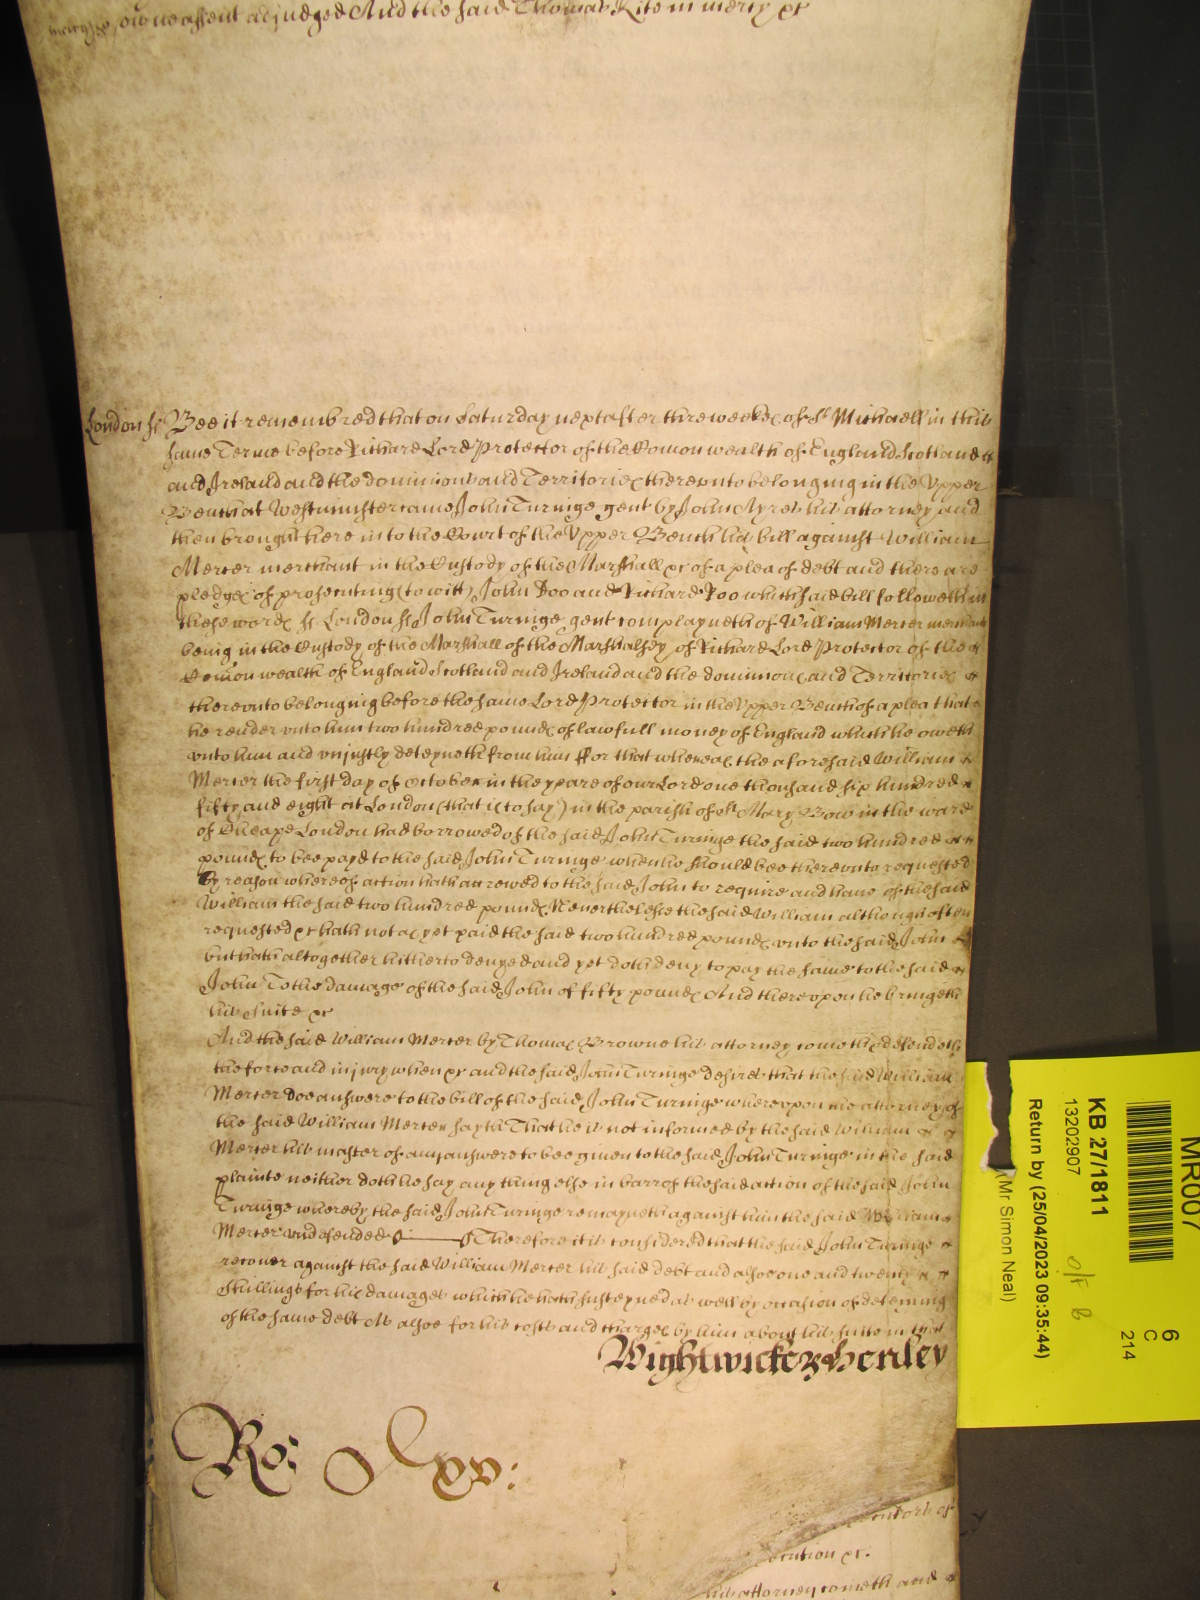 owne assent adjudged And the said Thomas Kite in mercy &c
London ss Bee it remembred that on Saturday next after three weekes of St Michaell in this
same Terme before Richard Lord Protector of the Comon wealth of England Scotland
and Ireland and the dominions and Territories thereunto belonging in the Vpper
Bench at Westminster came John Turinge gent by John Ayres his attorney and
then brought here into the Court of the Vpper Bench his bill against William
Mercer merchant in the Custody of the Marshall &c of a plea of debt and there are
pledges of prosecuting (to witt) John Doo and Richard Roo which said bill followeth in
these wordes ss London ss John Turinge gent complayneth of William Mercer merchant
being in the Custody of the Marshall of the Marshalsey of Richard Lord Protector of the
Comon wealth of England Scotland and Ireland and the dominions and Territories
therevnto belonging before the same Lord Protector in the Vpper Bench of a plea that
he render vnto him two hundred poundes of lawfull money of England which he oweth
vnto him and vnjustly deteyneth from him ffor that whereas the aforesaid William
Mercer the first day of October in the yeare of our Lord one thousand six hundred
fifty and eight at London (that is to say) in the parish of St Mary Bow in the ward
of Cheape London had borrowed of the said John Turinge the said two hundred
poundes to bee payd to the said John Turinge when he should bee therevnto requested
By reason whereof action hath accrewed to the said John to require and haue of the said
William the said two hundred poundes Neverthelesse the said William although often
requested &c hath not as yet paid the said two hundred poundes vnto the said John
but hath altogether hitherto denyed and yet doth deny to pay the same to the said
John To the damage of the said John of fifty poundes And therevpon he bringeth
his suite &c
And the said William Mercer by Thomas Browne his attorney cometh & defendeth
the force and injury when &c and the said John Turinge desires that the said William
Mercer doe answere to the bill of the said John Turinge wherevpon the attorney of
the said William Mercer sayth That he is not informed by the said William
Mercer his master of any answere to bee given to the said John Turinge in the said
plainte neither doth he say any thing else in barr of the said action of the said John
Turinge whereby the said John Turinge remayneth against him the said William
Mercer vndefended Therefore it is considered that the said John Turinge
recover against the said William Mercer his said debt and alsoe one and twenty
Shillings for his damages which he hath susteyned as well by occasion of deteyning
of the same debt As alsoe for his costs and charges by him about his suite in that
Wightwicke & Henley
Ro: Clxv:
cution &c.
his attorney cometh and
MR007
KB 27/1811
13202907
Return by (25/04/2023 09:35:44)
(Mr Simon Neal)
6
C
214